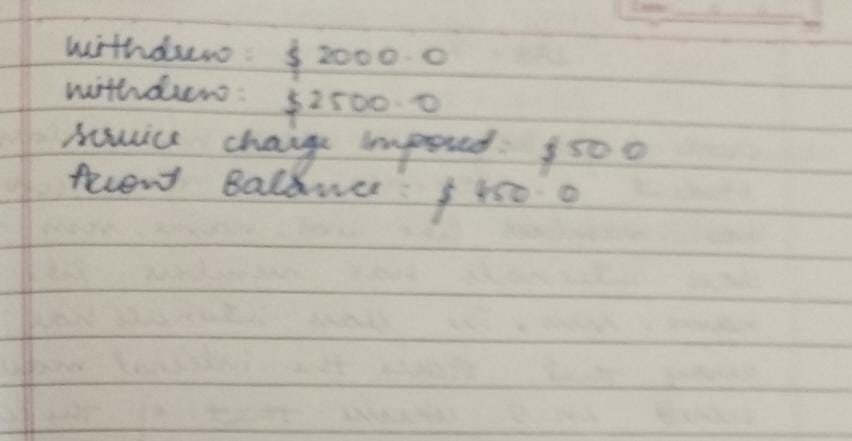 withdrew: $ 2000.0
withdrew: $2500.0
service charge imposed: $50 0
Account Balance: $ 450.0